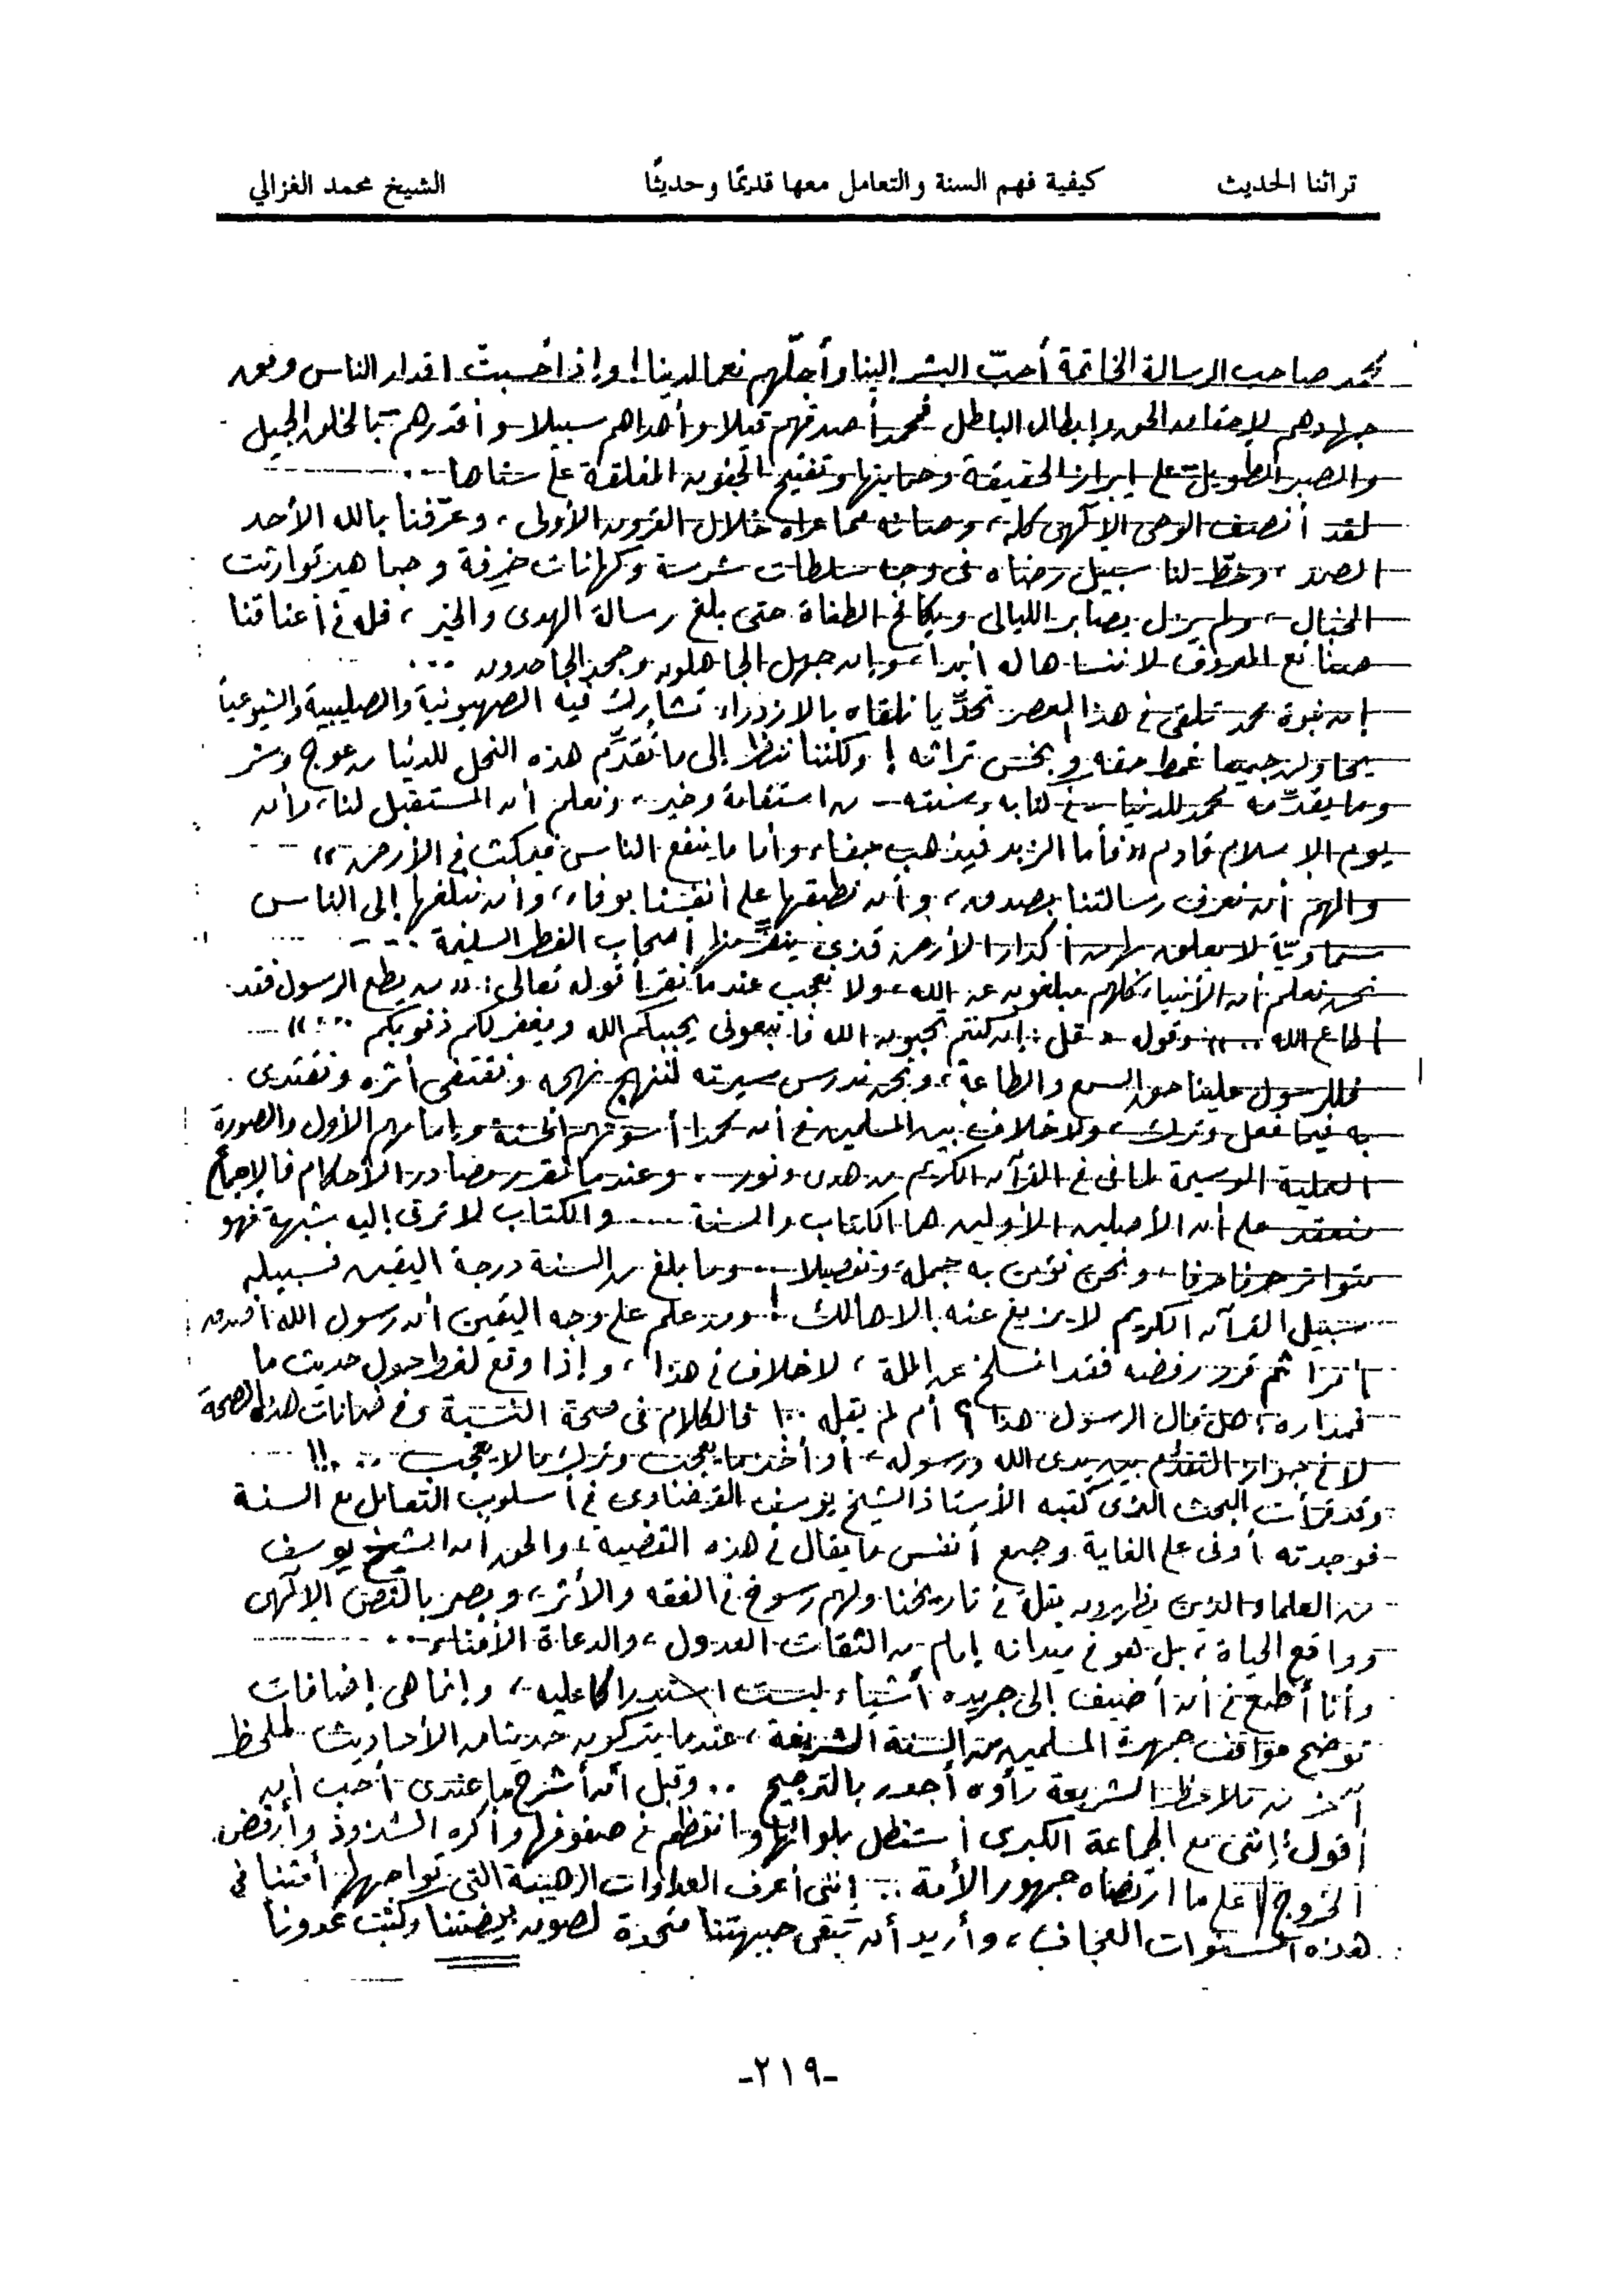 تراثنا الحديث كيفية فهم السنة والتعامل معها قديمًا وحديثًا الشيخ محمد الغزالي
محمد صاحب الرسالة الخاتمة أحبّ البشر إلينا وأجلّهم نعما لدينا! وإذا حُسبتْ اقدار الناس وفق
جهادهم لإحقاق الحق وإبطال الباطل فمحمد أصدقهم قيلا وأهداهم سبيلا وأقدرهم بالخلق الجميل
والصبر الطويل على إبراز الحقيقة وحمايتها وتفتيح الجفون المغلقة على سناها ..
لقد أنصف الوحى الإلهى كله، وصانه مما عراه خلال القرون الأولى، وعرّفنا بالله الأحد
الصمد، وخطّ لنا سبيل رضاه فى وجه سلطات شرسة وكهانات خَرِفة وجماهير توارثت
الخبال، ولم يزل يصابر الليالى ويكافح الطغاة حتى بلغ رسالة الهدى والخير، فله فى أعناقنا
صنائع المعروف لا ننساها له أبدا، وإن جهل الجاهلون وجحد الجاحدون ...
إن نبوة محمد تلقى فى هذا العصر تحدِّيا نلقاه بالازدراء، تشارك فيه الصهيونية والصليبية والشيوعية
يحاولون جميعا غمط حقه وبخس تراثه! ولكننا ننظر إلى ما تُقدِّم هذه النحل للدنيا من عوج وشر
وما يقدِّمه محمد للدنيا - فى كتابه وسنته - من استقامة وخير، ونعلم أن المستقبل لنا، وأن
يوم الإسلام قادم «فأما الزبد فيذهب جفاء وأما ما ينفع الناس فيمكث فى الأرض»
والمهم أن نعرف رسالتنا بصدق، وأن نطبقها على أنفسنا بوفاء، وأن نبلغها إلى الناس
سماويّة لا يعلق بها من أكدار الأرض قذى ينفِّر منها أصحاب الفطر السليمة ...
نحن نعلم أن الأنبياء كلهم مبلغون عن الله، ولا نعجب عندما نقرأ قوله تعالى: «من يطع الرسول فقد
أطاع الله ..» وقوله «قل: إن كنتم تحبون الله فاتبعونى يحببكم الله ويغفر لكم ذنوبكم ...»
فللرسول علينا حق السمع والطاعة، ونحن ندرس سيرته لننهج نهجه ونقتفى أثره ونقتدى
به فيما فعل وترك، ولا خلاف بين المسلمين فى أن محمدا أسوتهم الحسنة وإمامهم الأول والصورة
العملية الوسيمة لما فى القرآن الكريم من هدى ونور .. وعندما تُقرر مصادر الأحكام فالإجماع
منعقد على أن الأصلين الأولين هما الكتاب والسنة .... والكتاب لا ترقى إليه شبهة فهو
متواتر حرفا حرفا، ونحن نؤمن به جملة وتفصيلا .. وما بلغ من السنة درجة اليقين فسبيله
سبيل القرآن الكريم لا يزيغ عنه إلا هالك! ومن علم على وجه اليقين أن رسول الله أصدر
أمرا ثم قرر رفضه فقد انسلخ عن الملة، لا خلاف فى هذا، وإذا وقع لغط حول حديث ما
فمداره: هل قال الرسول هذا؟ أم لم يقله ..! فالكلام فى صحة النسبة وفى ضمانات هذه الصحة
لا فى جواز التقدُّم بين يدى الله ورسوله، أو أخذ ما يعجب وترك ما لا يعجب ..!!
وقد قرأت البحث الذى كتبه الأستاذ الشيخ يوسف القرضاوى فى أسلوب التعامل مع السنة
فوجدته أوفى على الغاية وجمع أنفس ما يقال فى هذه القضية، والحق أن الشيخ يوسف
من العلماء الذين يظهرون بقلة فى تاريخنا ولهم رسوخ فى الفقه والأثر، وبصر بالنص الإلهى
وواقع الحياة، بل هو فى ميدانه إمام من الثقات العدول، والدعاة الأمناء ..
وأنا أطمع فى أن أضيف إلى جريده أشياء ليست استدراكا عليه، وإنما هى إضافات
توضح مواقف جمهرة المسلمين من السنة الشريفة، عندما يتركون حديثا من الأحاديث لملحظ
آخر من ملاحظ الشريعة رأوه أجدر بالترجيح .. وقبل أن أشرح ما عندى أحب أن
أقول: إننى مع الجماعة الكبرى أستظل بلوائها وانتظم فى صفوفها وأكره الشذوذ وأرفض
الخروج على ما ارتضاه جمهور الأمة .. إننى أعرف العداوات الرهيبة التى تواجهها أمتنا فى
هذه السنوات العجاف، وأريد أن تبقى جبهتنا متحدة لصون بيضتنا وكبت عدونا
-٢١٩-